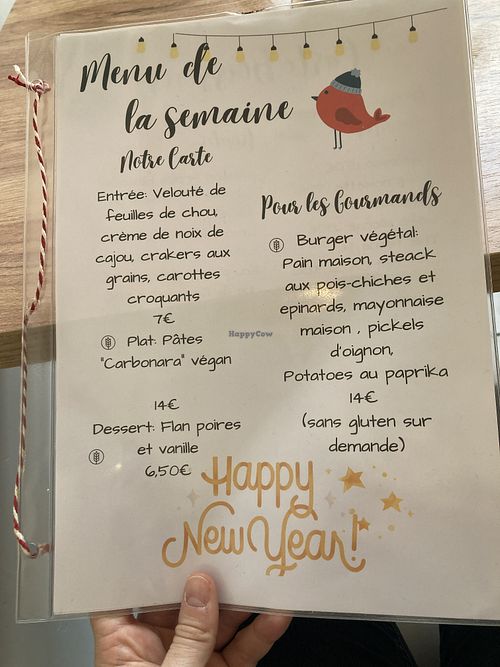 Menu de
la semaine
Notre Carte
Entrée: Velouté de
feuilles de chou,
crème de noix de
cajou, crakers aux
grains, carottes
croquants
7€
Plat: Pâtes
"Carbonara" végan
14€
Dessert: Flan poires
et vanille
6,50€
Pour les Gourmands
Burger végétal:
Pain maison, steack
aux pois-chiches et
epinards, mayonnaise
maison , pickels
d'oignon,
Potatoes au paprika
14€
(sans gluten sur
demande)
HappyCow
Happy
New Year!